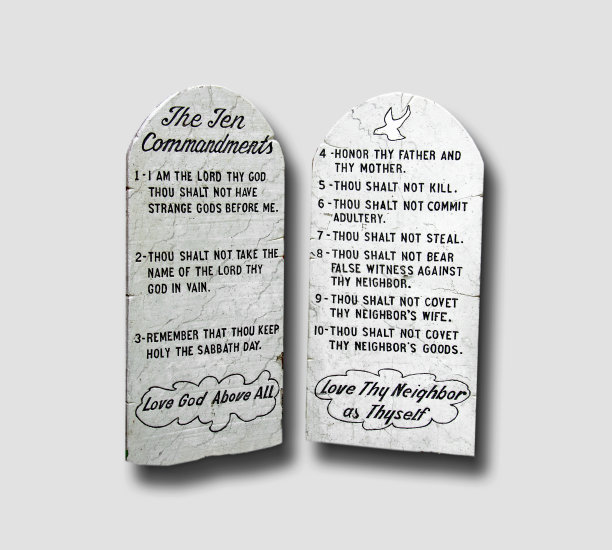 The Ten
Commandments
1-I AM THE LORD THY GOD
THOU SHALT NOT HAVE
STRANGE GODS BEFORE ME.
2-THOU SHALT NOT TAKE THE
NAME OF THE LORD THY
GOD IN VAIN.
3-REMEMBER THAT THOU KEEP
HOLY THE SABBATH DAY.
Love God Above All
4-HONOR THY FATHER AND
THY MOTHER.
5-THOU SHALT NOT KILL.
6-THOU SHALT NOT COMMIT
ADULTERY.
7-THOU SHALT NOT STEAL.
8-THOU SHALT NOT BEAR
FALSE WITNESS AGAINST
THY NEIGHBOR.
9-THOU SHALT NOT COVET
THY NEIGHBOR'S WIFE.
10-THOU SHALT NOT COVET
THY NEIGHBOR'S GOODS.
Love Thy Neighbor
as Thyself